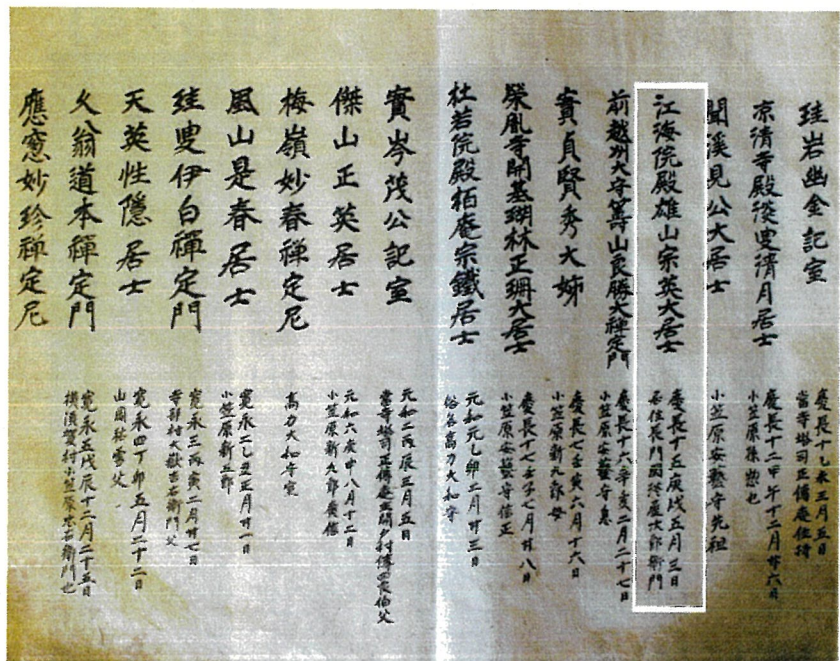 珪岩幽金記室
慶長十乙未三月五日
當寺塔司正傳庵住持
凉清寺殿後叟清月居士
慶長十二甲午十二月廿六日
小笠原孫惣也
聞溪見公大居士
小笠原安藝守先祖
江海院殿雄山宗英大居士
慶長十五庚戌五月三日
右住長門國 次郎衛門
前越州大守 山良勝大禅定門
慶長十六辛亥二月二十七日
小笠原安藝守息
實貞賢秀大姉
慶長七壬寅六月十六日
小笠原新九郎母
榮胤寺開基瑚林正珊大居士
慶長十七壬子七月廿八日
小笠原安藝守信正
杜若院殿栢庵宗鐵居士
元和元乙卯二月廿三日
俗名高力大和守
實岑茂公記室
元和二丙辰三月五日
當寺塔司正傳庵
伯父
傑山正英居士
元和六庚申八月十二日
小笠原新九郎廣信
梅嶺妙春禅定尼
高力大和守室
風山是春居士
寛永二乙丑正月廿一日
小笠原新五郎
珪叟伊白禪定門
寛永三丙寅二月廿七日
寺部村大嶽吉右衛門父
天英性隱居士
寛永四丁卯五月二十二日
山岡 父
久翁道本禪定門
寛永五戊辰十二月二十五日
横須賀村小笠原 右衛門也
應窓妙珍禅定尼